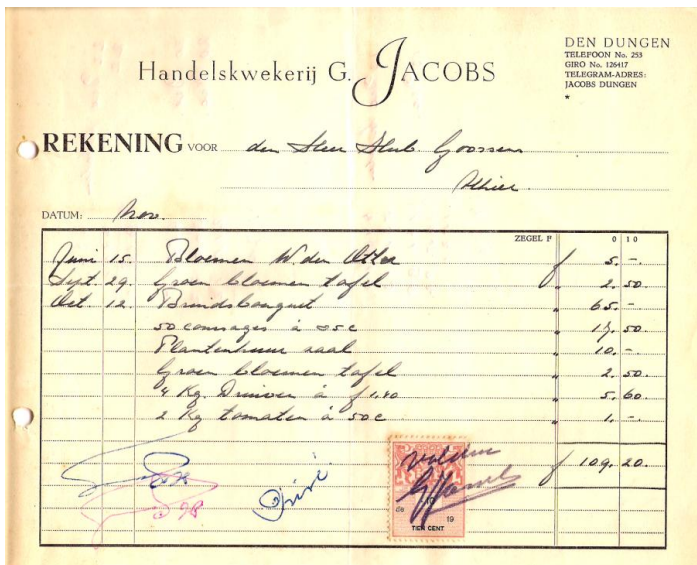 Handelskwekerij G. JACOBS
DEN DUNGEN
TELEFOON No. 253
GIRO No. 126417
TELEGRAM-ADRES:
JACOBS DUNGEN
*
REKENING VOOR den Heer Hub. Goossens
Alhier.
DATUM: Nov.
ZEGEL F 0 10
Juni 15. Bloemen W. den Otter f 5. -.
Sept. 29. Groen bloemen tafel " 2. 50.
Oct. 12. Bruidsbouquet " 65. -
50 corsages à 35c " 17. 50.
Plantenhuur zaal " 10. -
Groen bloemen tafel " 2. 50.
4 Kg. Druiven à f 1,40 " 5. 60
2 Kg tomaten à 50c " 1, -.
f 109. 20.
Privé
voldaan
GJacobs
de 19
TIEN CENT